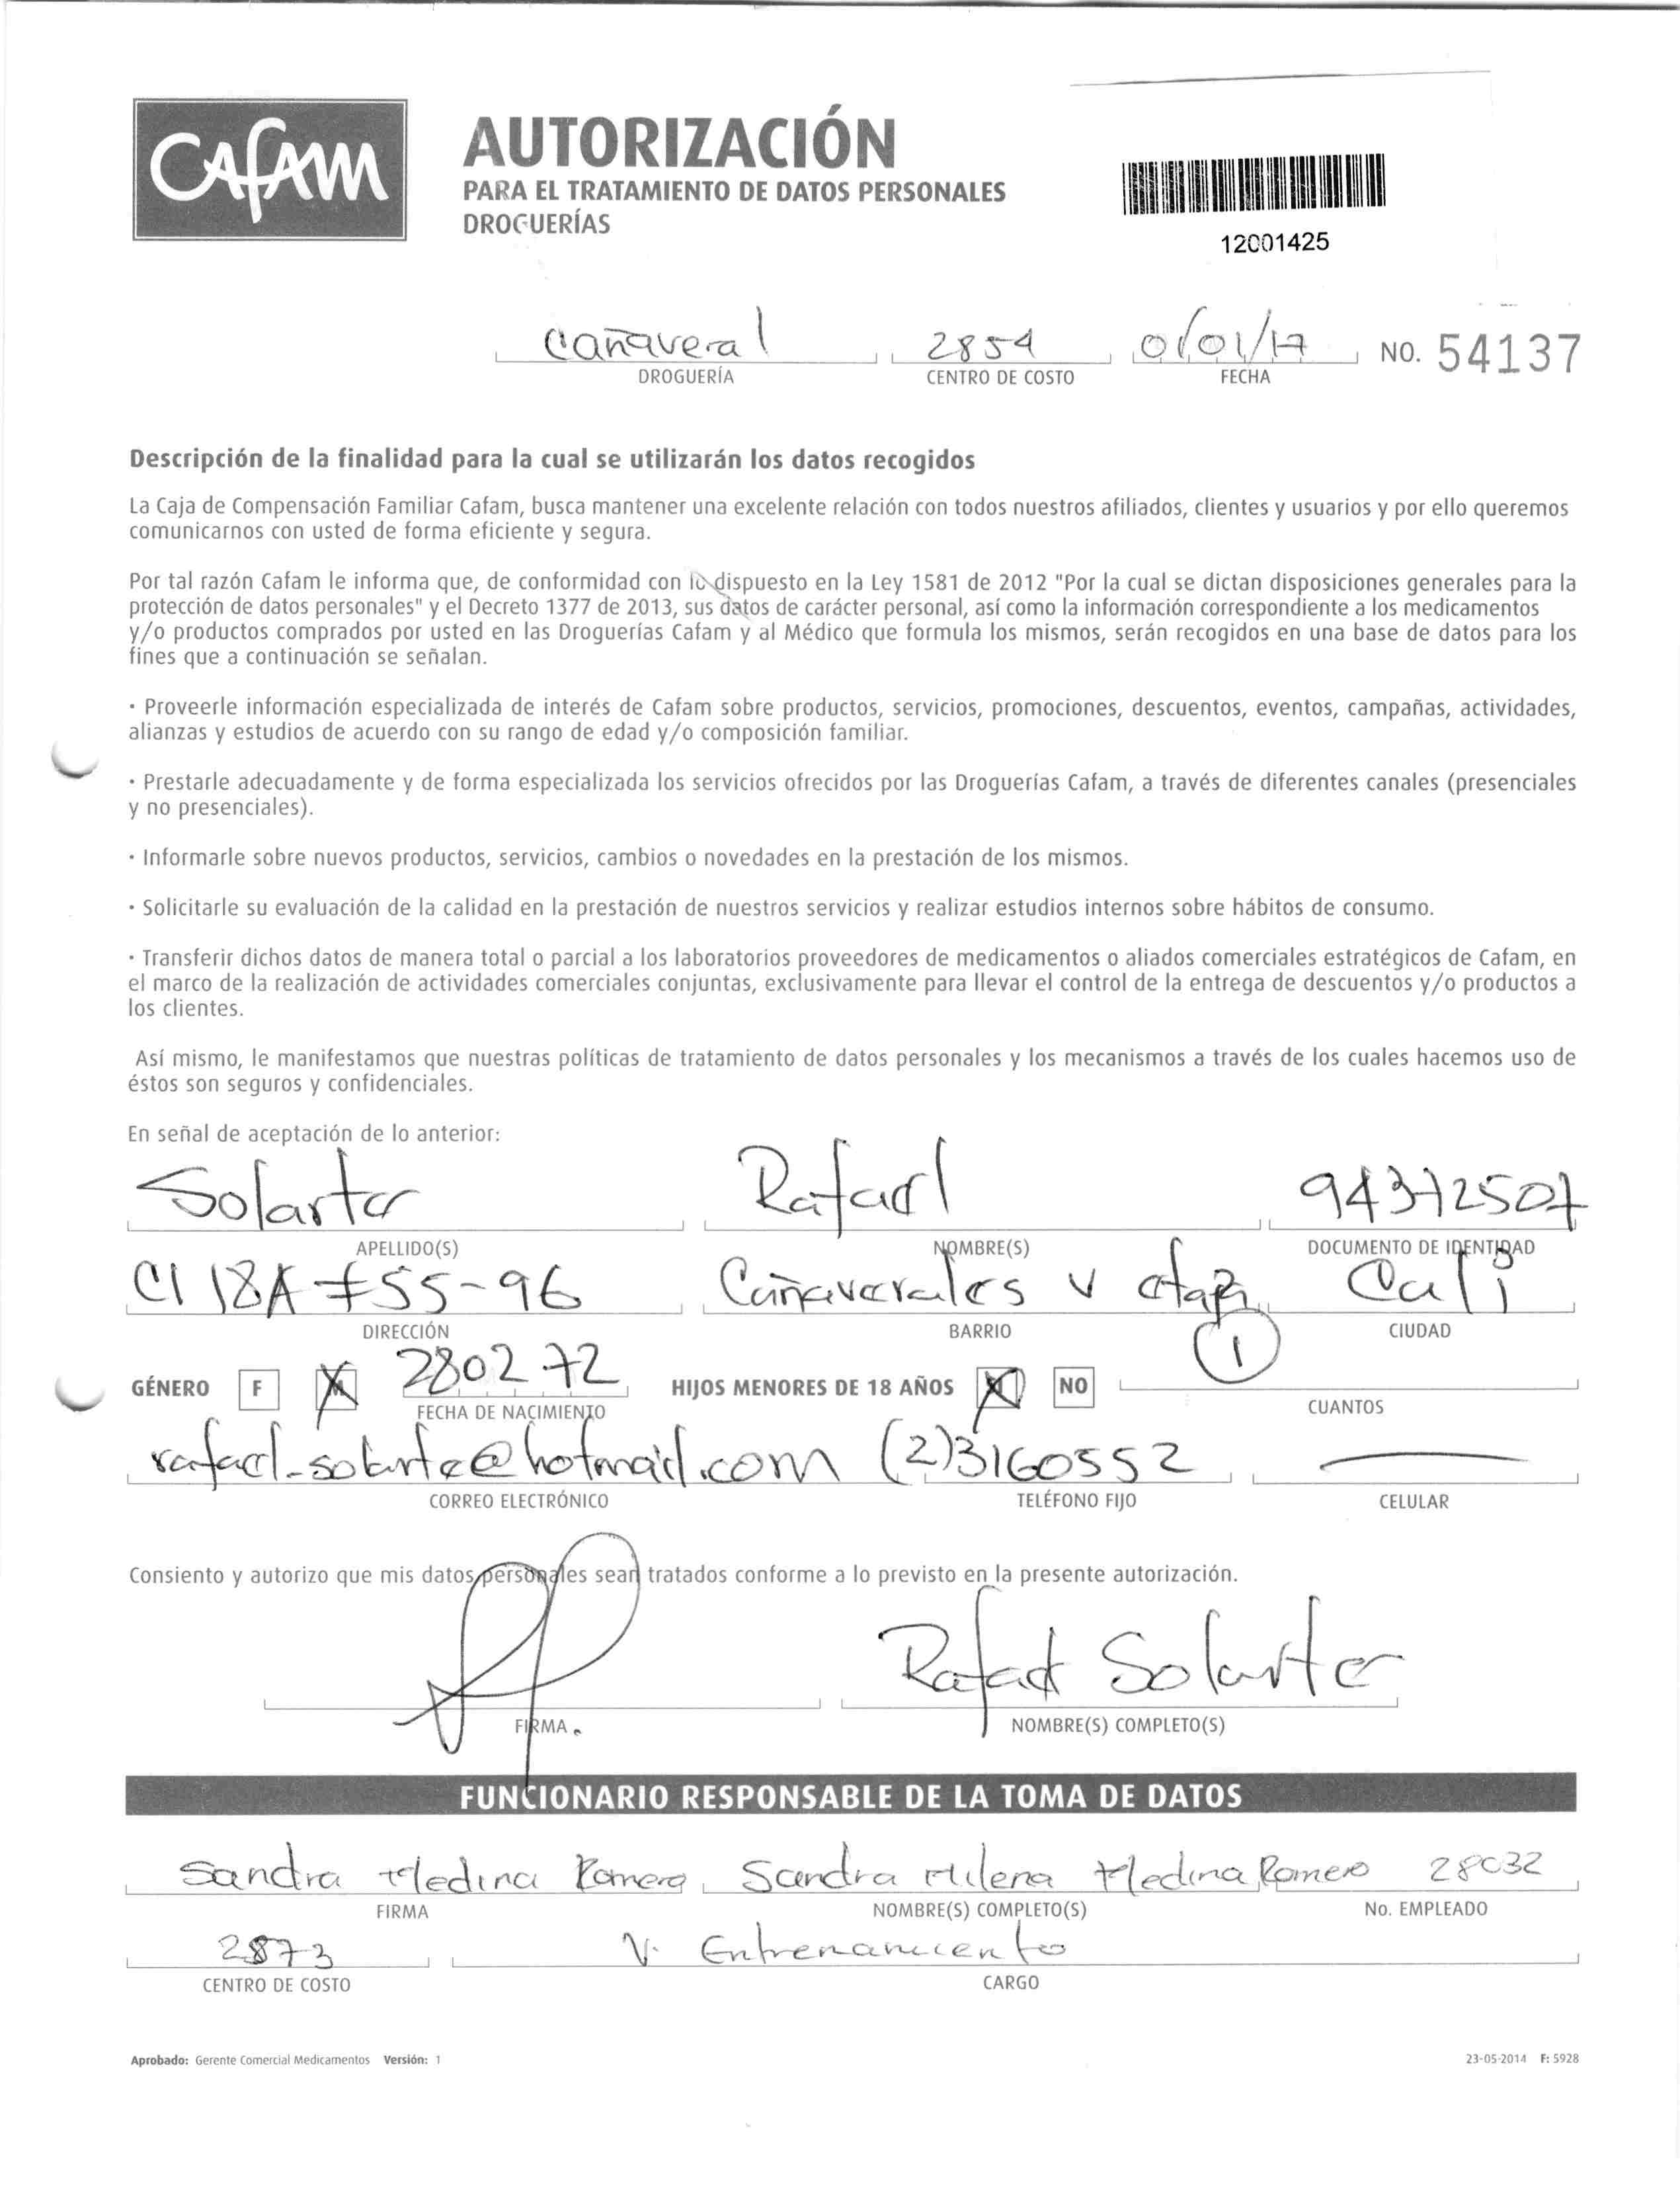 CAFAM
AUTORIZACIÓN
PARA EL TRATAMIENTO DE DATOS PERSONALES
DROGUERÍAS
12001425
Cañaveral 2854 01/01/17 NO. 54137
DROGUERÍA CENTRO DE COSTO FECHA
Descripción de la finalidad para la cual se utilizarán los datos recogidos
La Caja de Compensación Familiar Cafam, busca mantener una excelente relación con todos nuestros afiliados, clientes y usuarios y por ello queremos
comunicarnos con usted de forma eficiente y segura.
Por tal razón Cafam le informa que, de conformidad con lo dispuesto en la Ley 1581 de 2012 "Por la cual se dictan disposiciones generales para la
protección de datos personales" y el Decreto 1377 de 2013, sus datos de carácter personal, así como la información correspondiente a los medicamentos
y/o productos comprados por usted en las Droguerías Cafam y al Médico que formula los mismos, serán recogidos en una base de datos para los
fines que a continuación se señalan.
· Proveerle información especializada de interés de Cafam sobre productos, servicios, promociones, descuentos, eventos, campañas, actividades,
alianzas y estudios de acuerdo con su rango de edad y/o composición familiar.
· Prestarle adecuadamente y de forma especializada los servicios ofrecidos por las Droguerías Cafam, a través de diferentes canales (presenciales
y no presenciales).
· Informarle sobre nuevos productos, servicios, cambios o novedades en la prestación de los mismos.
· Solicitarle su evaluación de la calidad en la prestación de nuestros servicios y realizar estudios internos sobre hábitos de consumo.
· Transferir dichos datos de manera total o parcial a los laboratorios proveedores de medicamentos o aliados comerciales estratégicos de Cafam, en
el marco de la realización de actividades comerciales conjuntas, exclusivamente para llevar el control de la entrega de descuentos y/o productos a
los clientes.
Así mismo, le manifestamos que nuestras políticas de tratamiento de datos personales y los mecanismos a través de los cuales hacemos uso de
éstos son seguros y confidenciales.
En señal de aceptación de lo anterior:
Solarte Rafael 94372507
APELLIDO(S) NOMBRE(S) DOCUMENTO DE IDENTIDAD
Cl 18A #55-96 Cañaverales v etapa Cali
DIRECCIÓN BARRIO CIUDAD
GÉNERO F M 280272 HIJOS MENORES DE 18 AÑOS SI NO 1
FECHA DE NACIMIENTO CUANTOS
rafael_solarte@hotmail.com (2)3160552
CORREO ELECTRÓNICO TELÉFONO FIJO CELULAR
Consiento y autorizo que mis datos personales sean tratados conforme a lo previsto en la presente autorización.
Rafael Solarte
FIRMA NOMBRE(S) COMPLETO(S)
FUNCIONARIO RESPONSABLE DE LA TOMA DE DATOS
Sandra Medina Romero Sandra Milena Medina Romero 28032
FIRMA NOMBRE(S) COMPLETO(S) No. EMPLEADO
2873 V. Entrenamiento
CENTRO DE COSTO CARGO
Aprobado: Gerente Comercial Medicamentos Versión: 1 23-05-2014 F: 5928